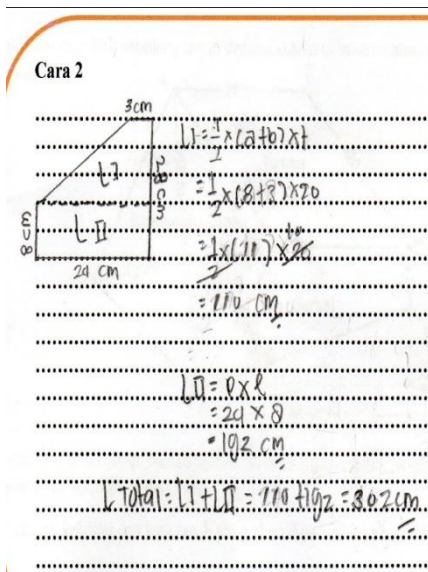 Cara 2
3cm
28 cm
L I
L II
8 cm
24 cm
L I = 1/2 x (a+b) x t
= 1/2 x (8+3) x 20
= 1/2 x (11) x 20 10
= 110 cm
L II = p x l
= 24 x 8
= 192 cm
L Total = L I + L II = 110 + 192 = 302 cm